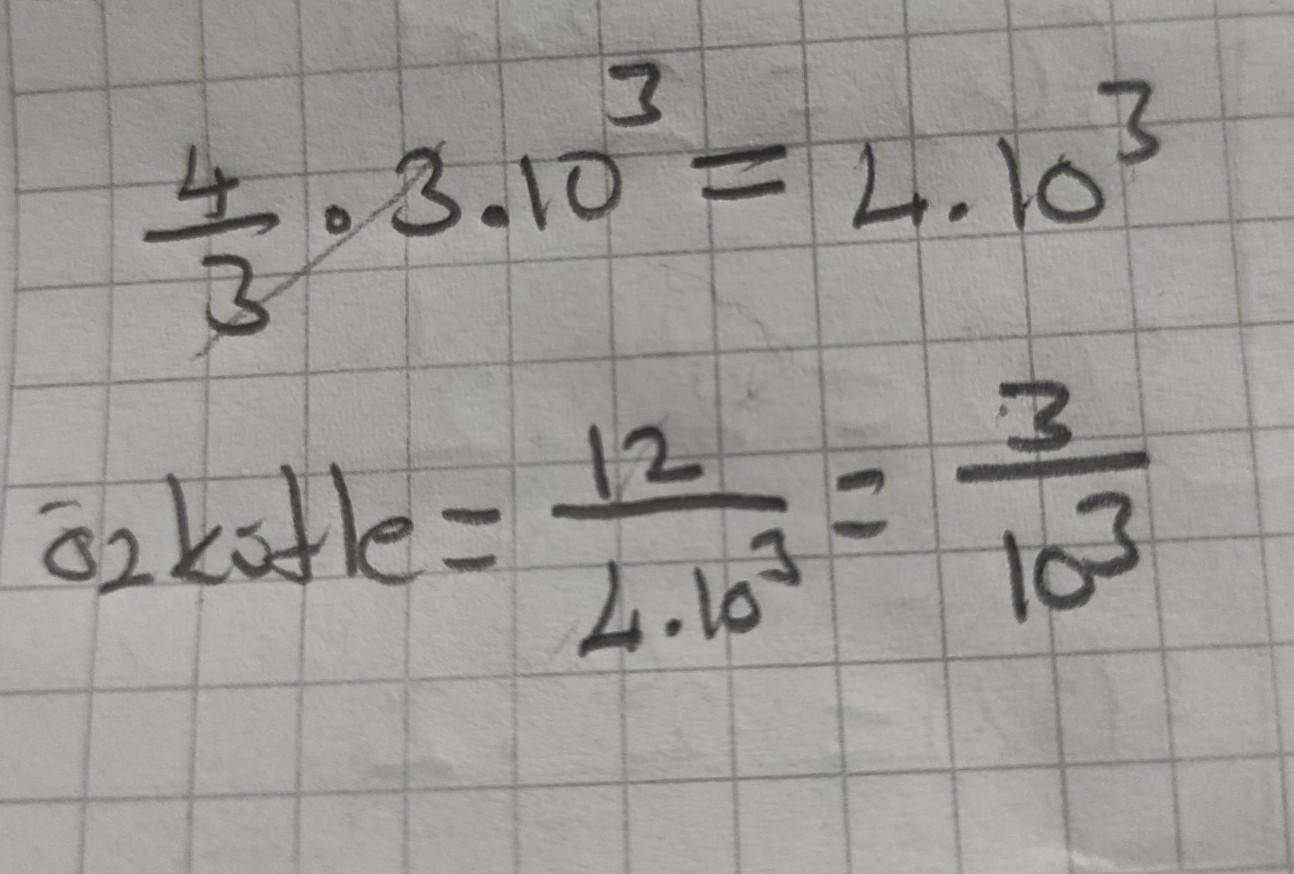 4/3 · 3 . 10³ = 4 . 10³
özkütle = 12/4.10³ = 3/10³